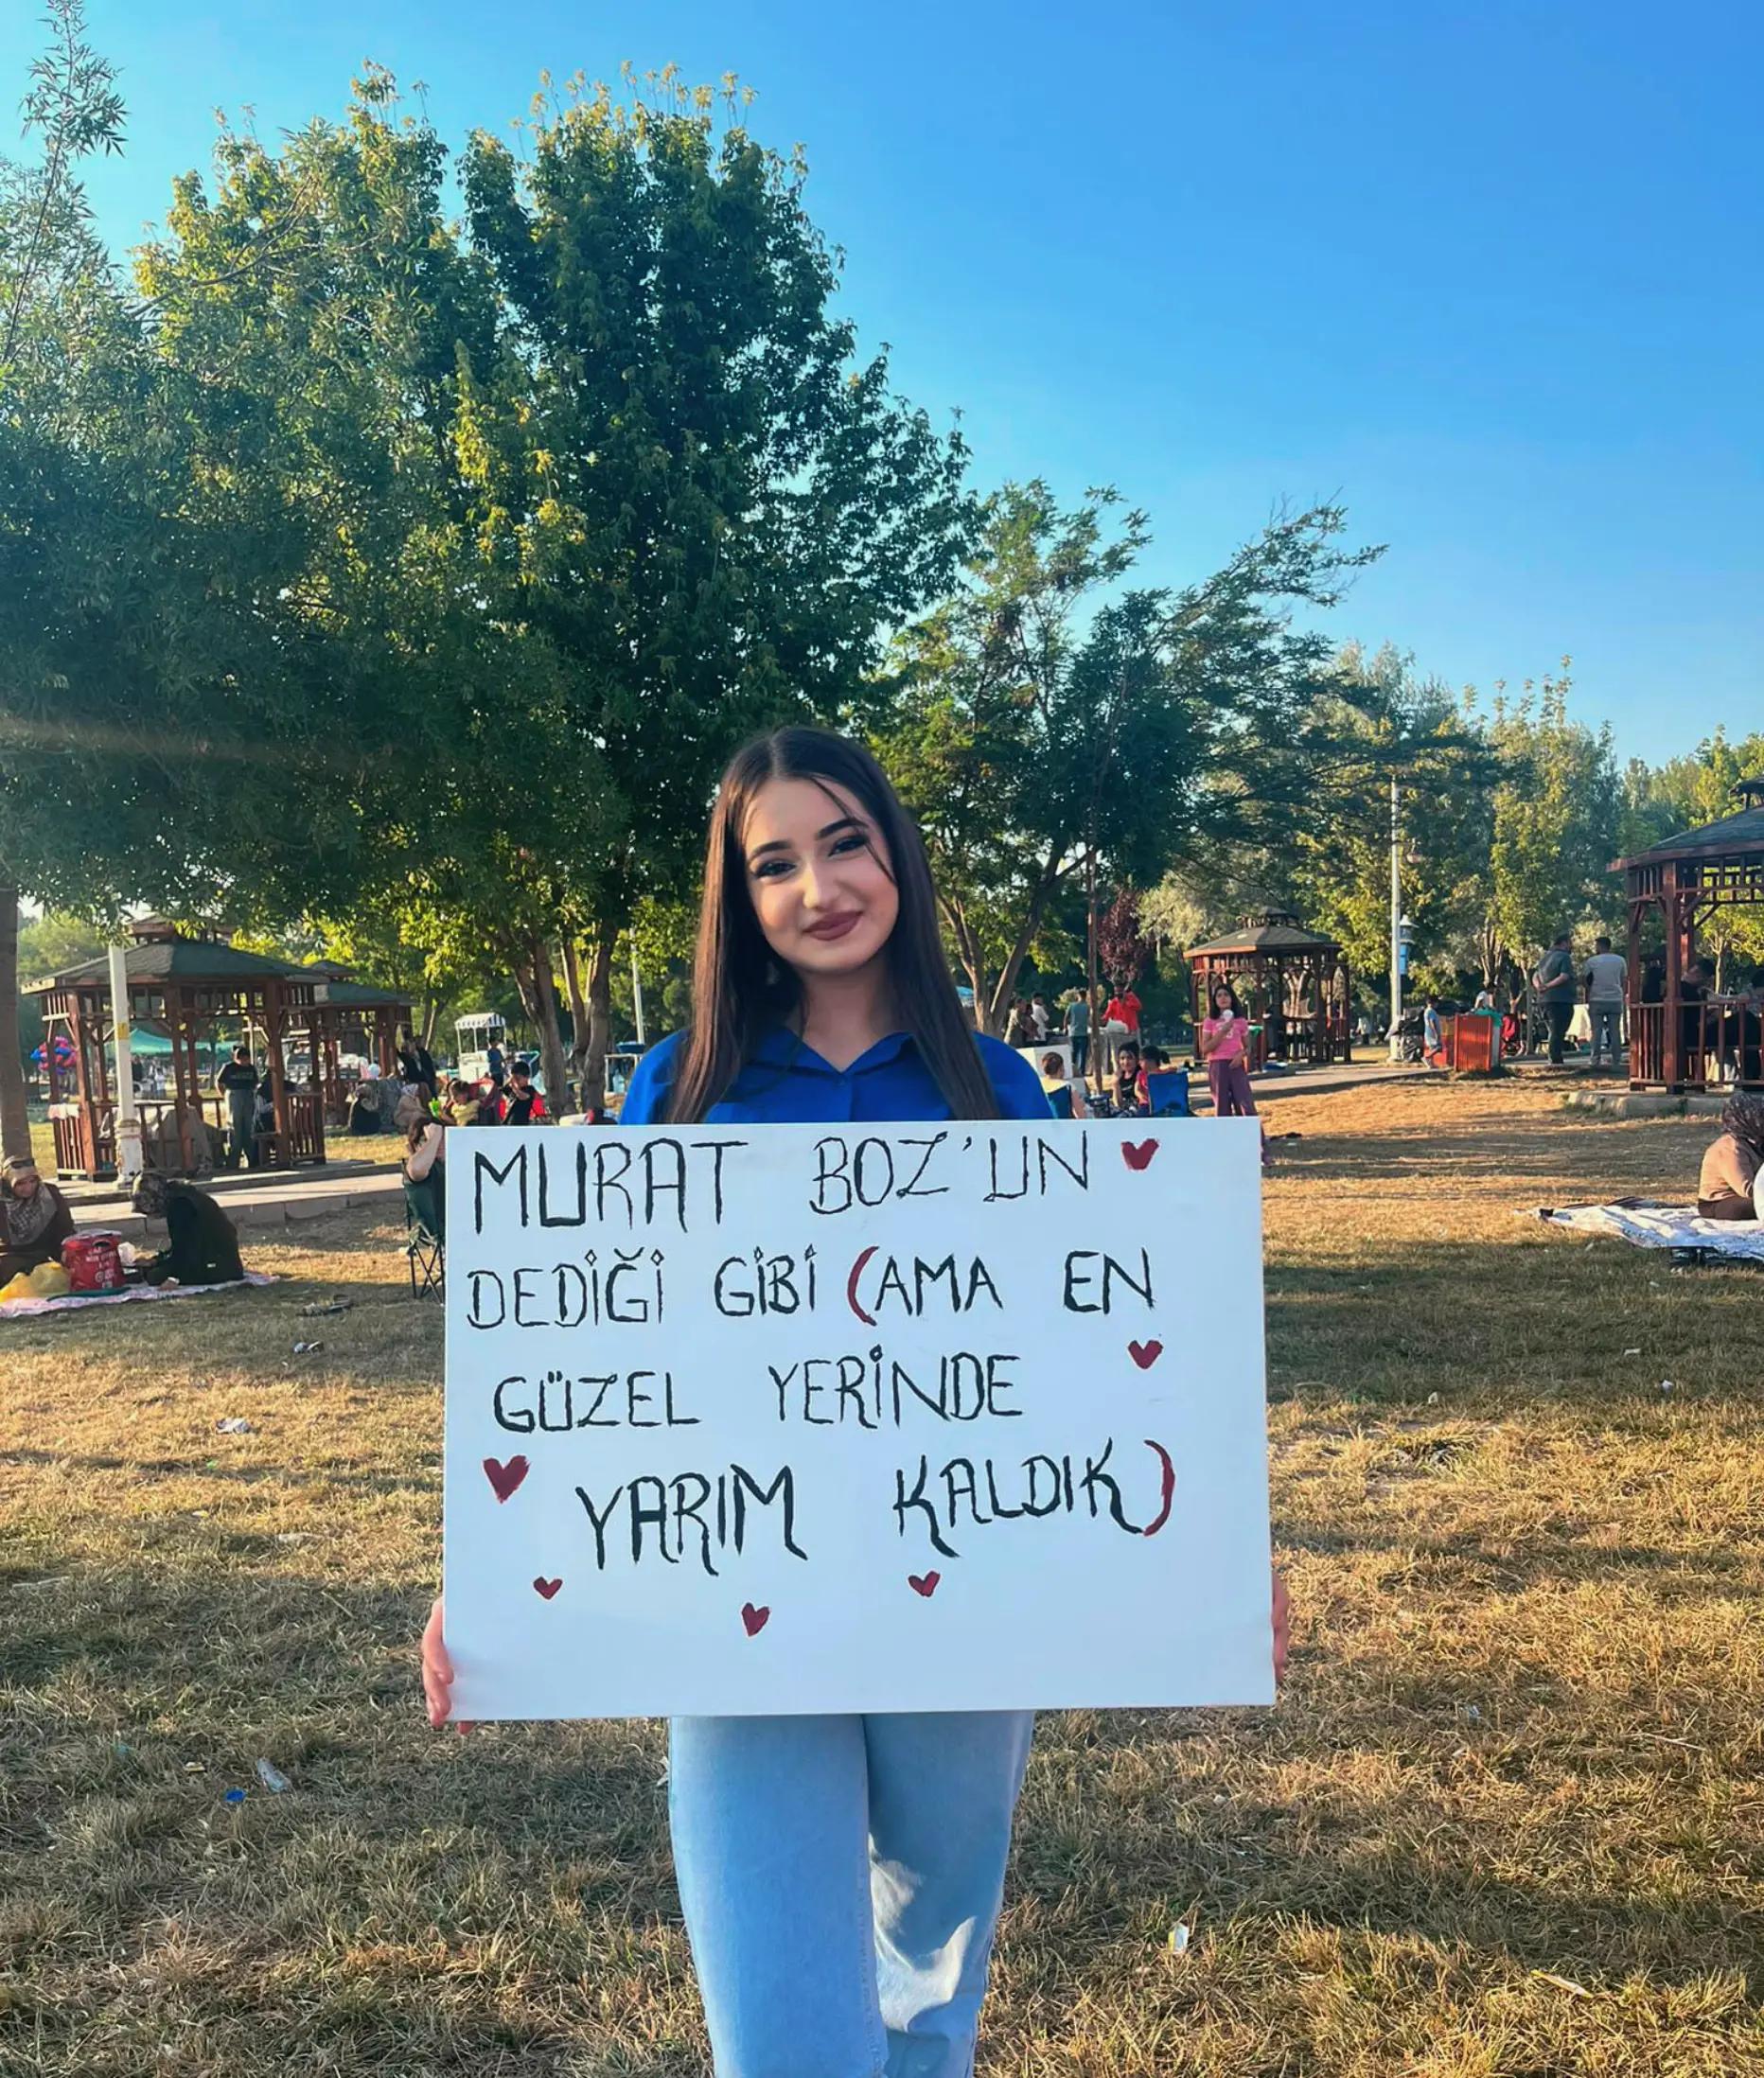 MURAT BOZ'UN
DEDİĞİ GİBİ (AMA EN
GÜZEL YERİNDE
YARIM KALDIK)